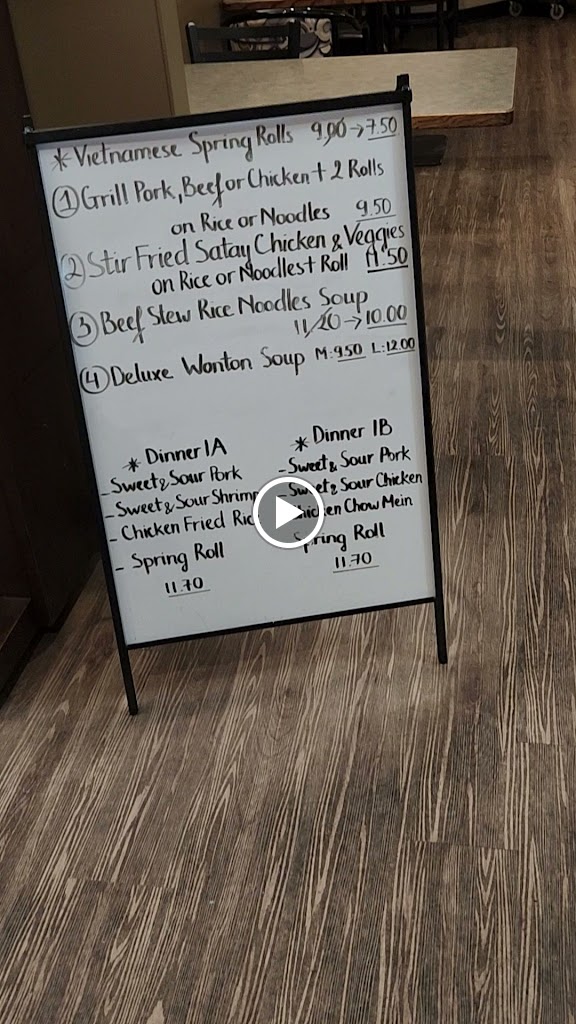 * Vietnamese Spring Rolls 9.00 → 7.50
① Grill Pork, Beef or Chicken + 2 Rolls
on Rice or Noodles 9.50
② Stir Fried Satay Chicken & Veggies
on Rice or Noodles + Roll 11.50
③ Beef Stew Rice Noodles Soup
11.20 → 10.00
④ Deluxe Wonton Soup M: 9.50 L: 12.00
* Dinner 1A
- Sweet & Sour Pork
- Sweet & Sour Shrimp
- Chicken Fried Ric
- Spring Roll
11.70
* Dinner 1B
- Sweet & Sour Pork
- Sweet & Sour Chicken
hicken Chow Mein
Spring Roll
11.70